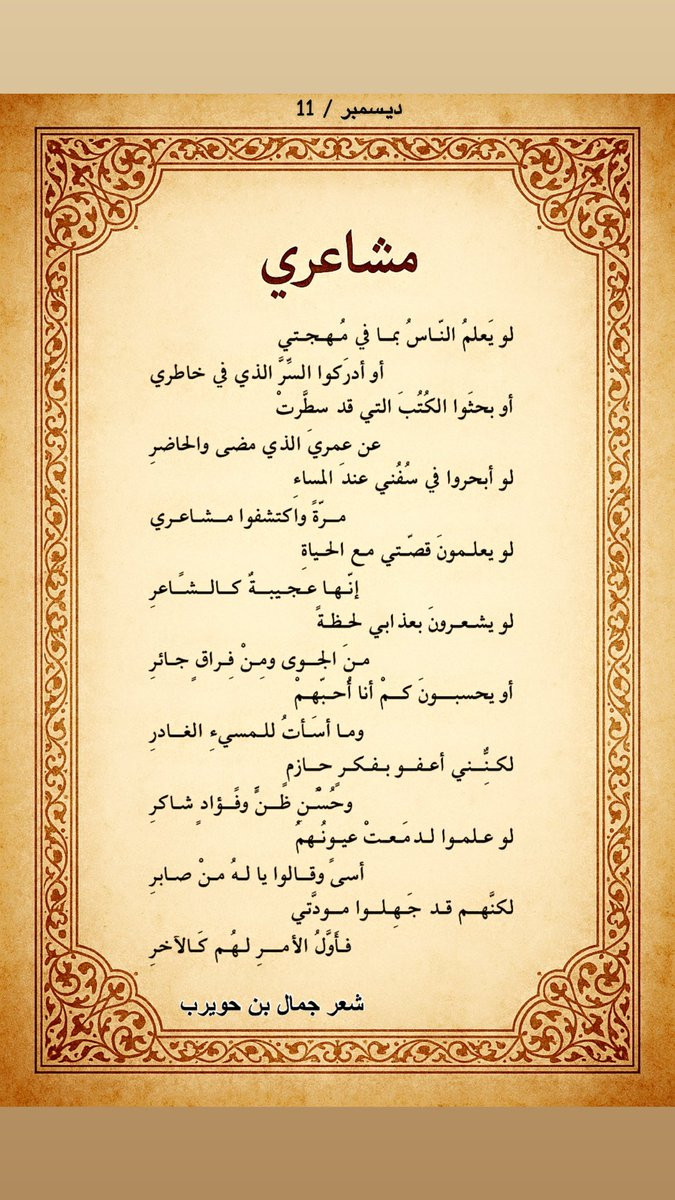 ديسمبر / 11
مشاعري
لو يَعلمُ النّاسُ بمـا في مُـهـجـتي
أو أدرَكوا السِّرَّ الذي في خاطري
أو بحثَوا الكُتُبَ التي قد سطَّرتْ
عن عمريَ الذي مضى والحاضرِ
لو أبحروا في سُفُني عندَ المساءِ
مــرّةً واكتشفوا مــشـاعـري
لو يعلـمونَ قصّـتي مـع الحـياةِ
إنّـهـا عـجـيـبــةٌ كـالــشّـاعرِ
لو يشـعـرونَ بعذابي لحـظـةً
مـنَ الجـوى ومِـنْ فِـراقٍ جـائرِ
أو يحسبــونَ كــمْ أنا أُحـبّهـمْ
ومـا أسَـأتُ للـمسيءِ الغــادرِ
لكـنَّــني أعـفــو بـفـكـرٍ حــازمٍ
وحُسْـنِ ظــنٍّ وفُــؤادٍ شـاكرِ
لو عـلمـوا لـدمَـعـتْ عيـونُـهمُ
أسىً وقــالوا يا لـهُ مـنْ صـابرِ
لكنَّهــم قـد جَـهِـلــوا مــودَّتي
فـأَوَّلُ الأمــرِ لـهُـم كَـالآخرِ
شعر جمال بن حويرب